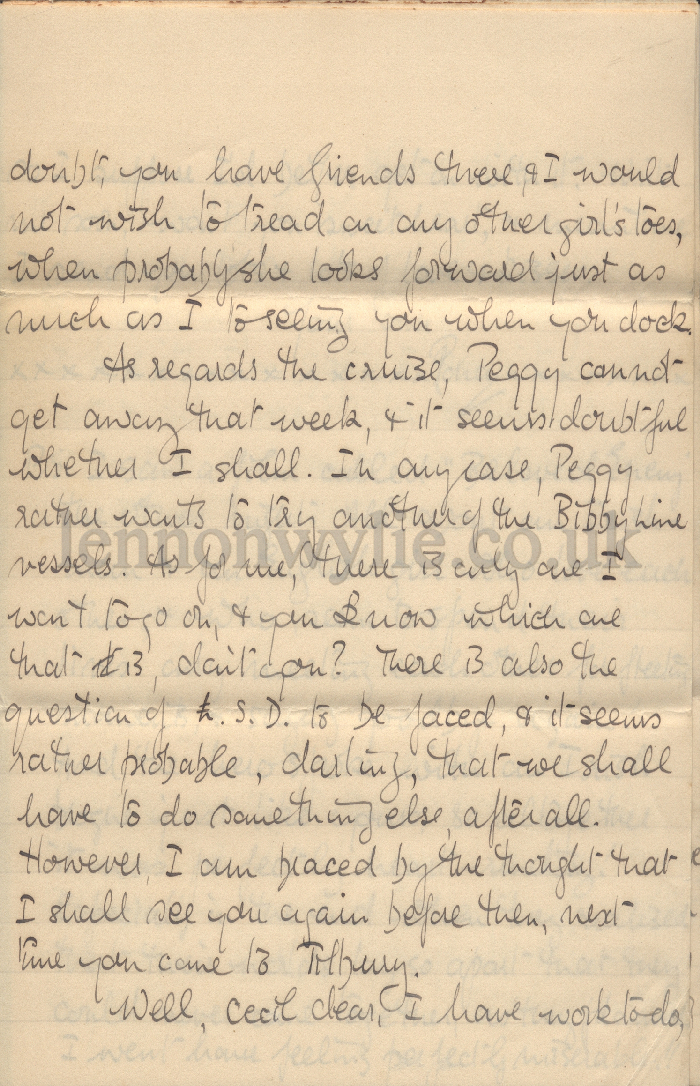 doubt, you have friends there, & I would
not wish to tread on any other girl's toes,
when probably she looks forward just as
much as I to seeing you when you dock.
As regards the cruise, Peggy cannot
get away that week, & it seems doubtful
whether I shall. In any case, Peggy
rather wants to try another of the Bibby Line
vessels. As for me, there is only one I
want to go on, & you know which one
that is, don't you? There is also the
question of £.S.D. to be faced, & it seems
rather probable, darling, that we shall
have to do something else, after all.
However, I am braced by the thought that
I shall see you again before then, next
time you come to Tilbury.
Well, Cecil dear, I have work to do,
lennonwylie.co.uk